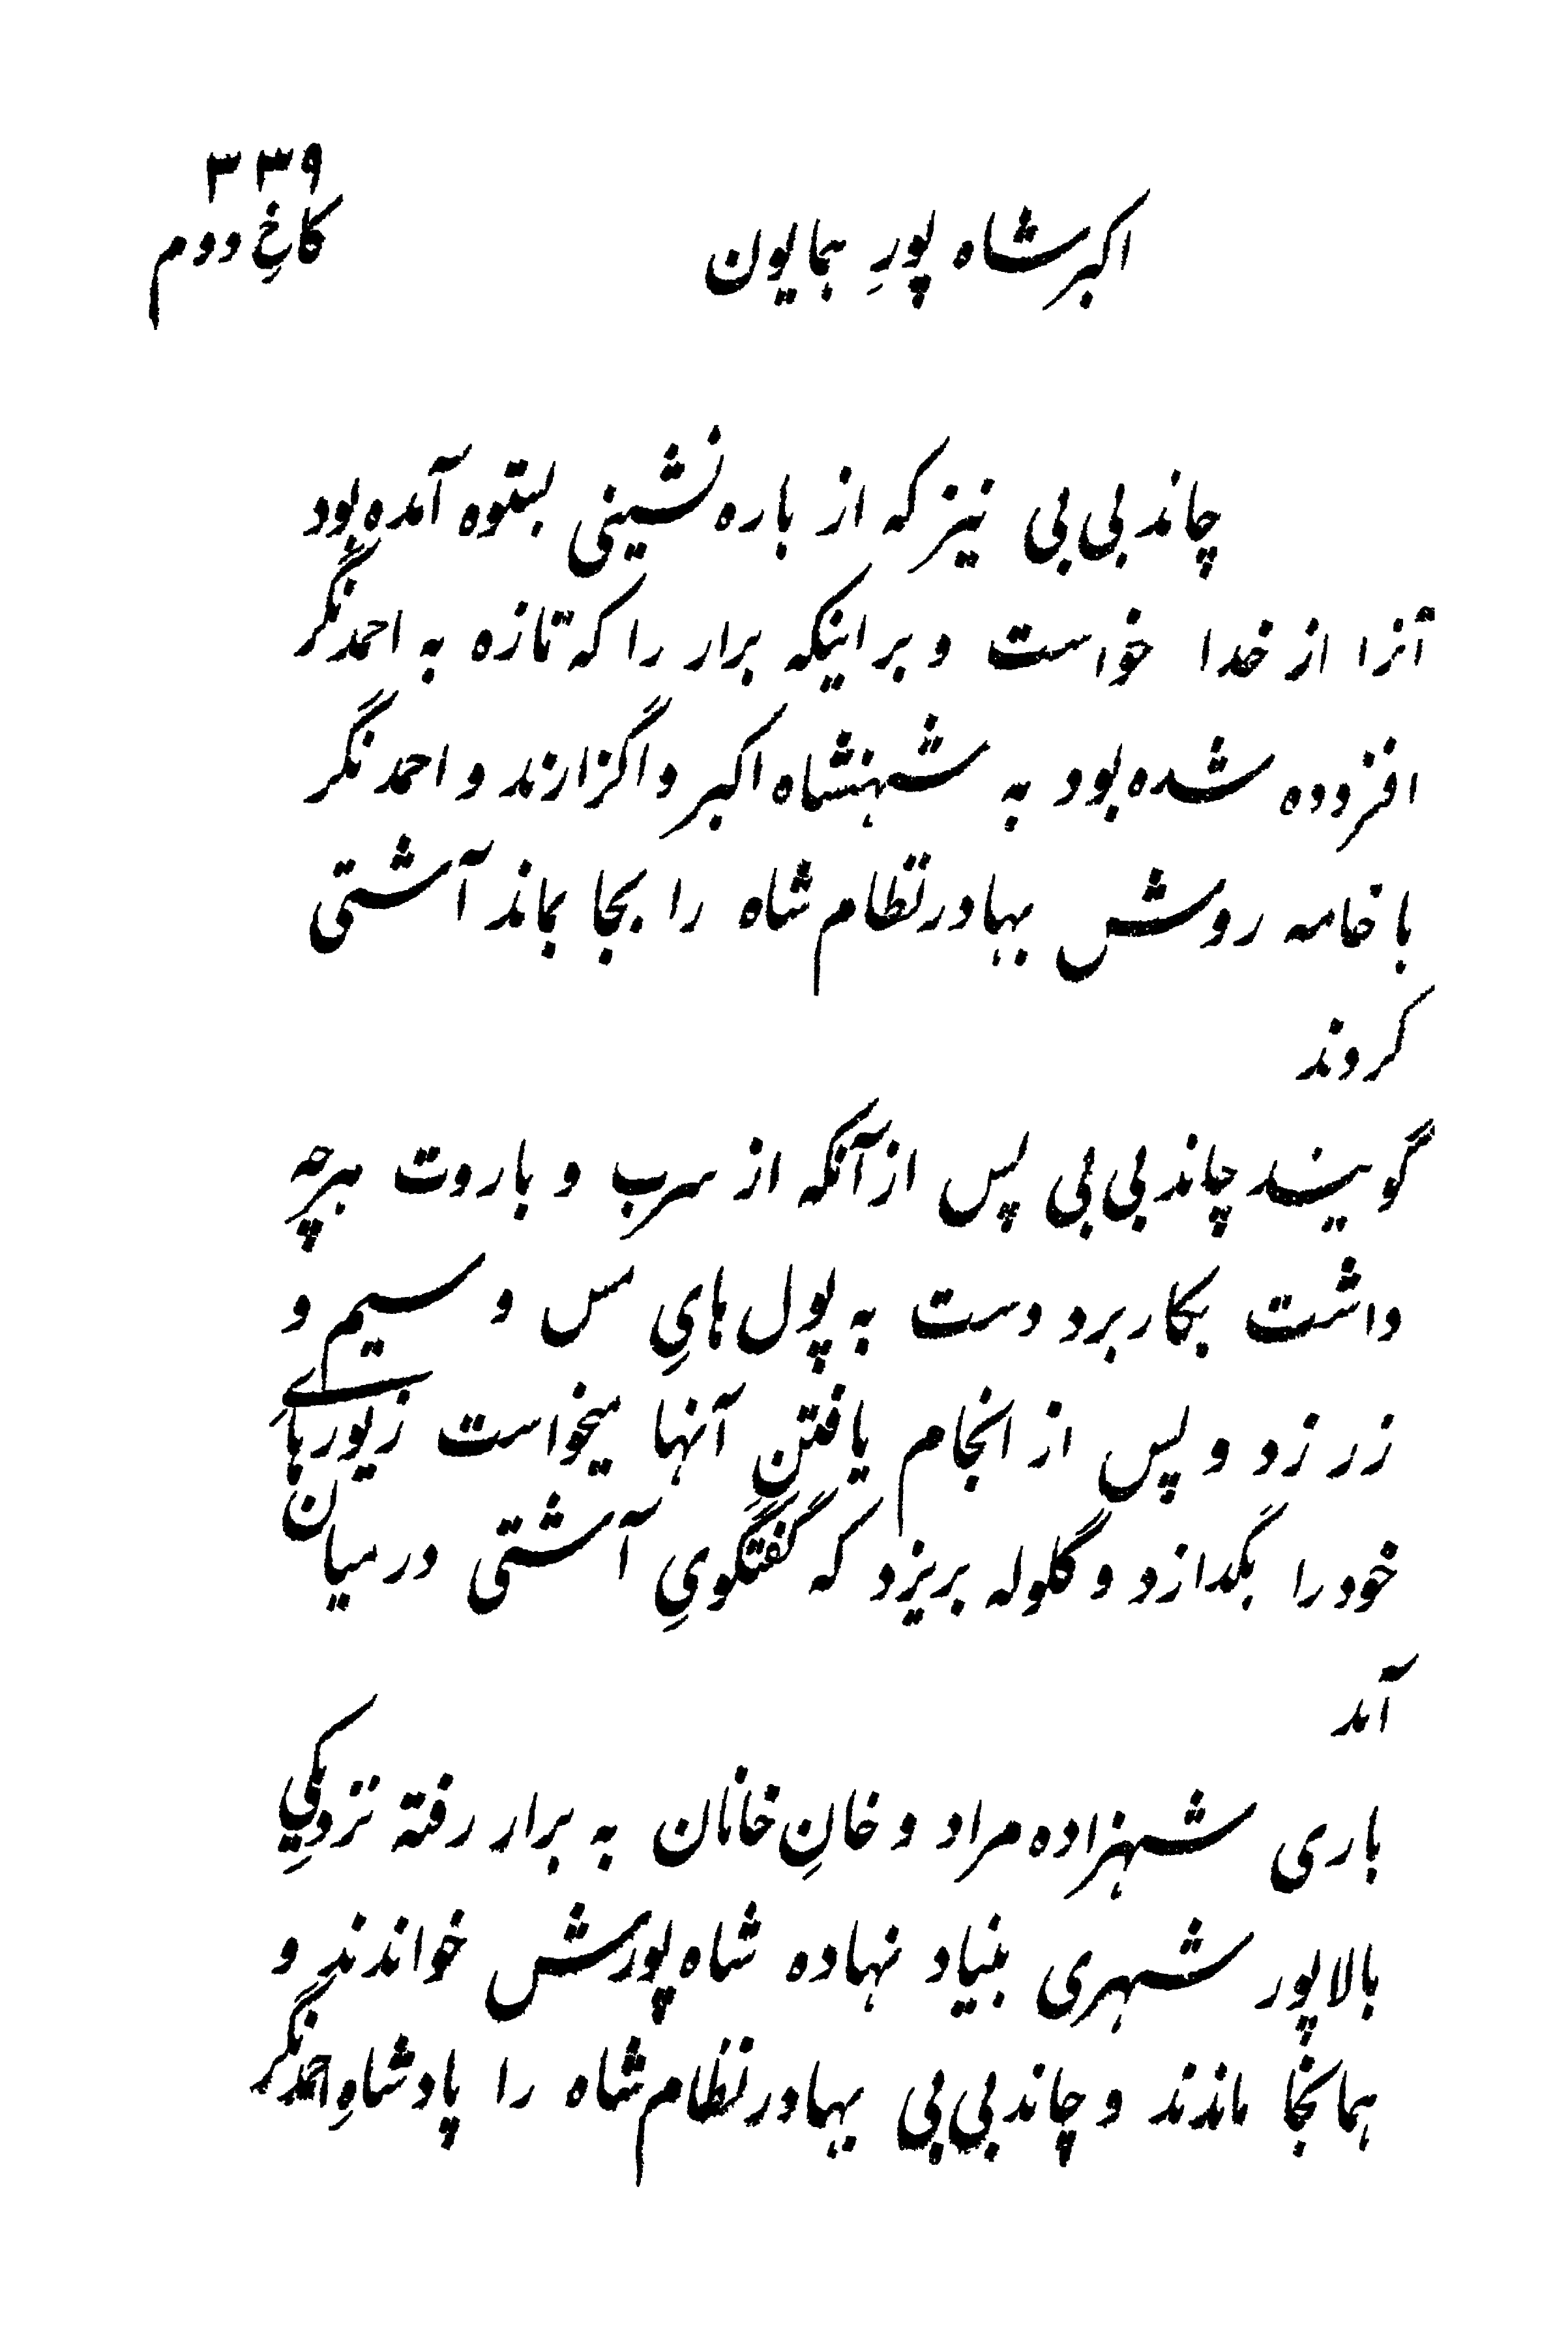 ۳۳۹
اکبرشاه پورِ همایون
کاخِ دوم
چاند بی بی نیز که از باره نشینی بستوه آمده بود
آنرا از خدا خواست و بر اینکه برار را که تازه به احمد نگر
افزوده شده بود به شهنشاه اکبر واگزارند و احمد نگر
با خامه روش بهادر نظام شاه را بجا بماند آشتی
کردند
گویند چاند بی بی پس از آنکه از سرب و باروت هرچه
داشت بکار برد دست به پول هایِ مس و سیم و
زر زد و پس از انجام یافتنِ آنها میخواست زیورهایِ
خود را بگدازد و گلوله بریزد که گفتگویِ آشتی در میان
آمد
باری شهزاده مراد و خانِ خانان به برار رفته نزدیکیِ
بالاپور شهری بنیاد نهاده شاه پورش خواندند و
همانجا ماندند و چاند بی بی بهادر نظام شاه را پادشاهِ احمد نگر